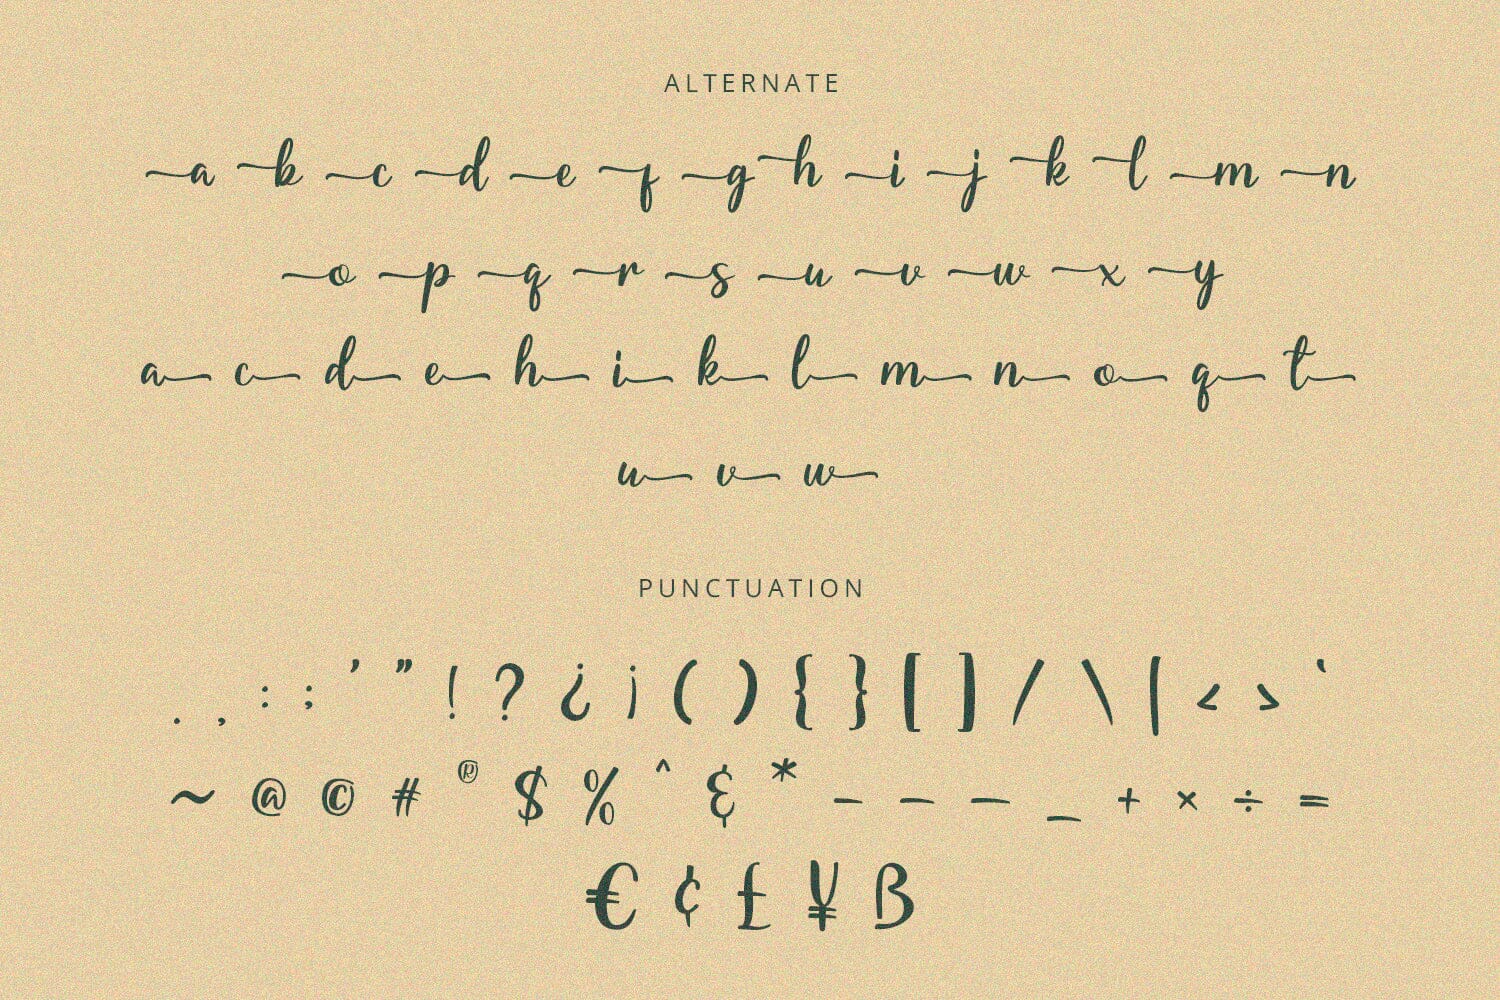 ALTERNATE
a b c d e f g h i j k l m n
o p q r s u v w x y
a c d e h i k l m n o q t
u v w
PUNCTUATION
. , : ; ’ ” ! ? ¿ ¡ ( ) { } [ ] / \ | < > ‘
~ @ © # ® $ % ^ & * - – — _ + × ÷ =
€ ¢ £ ¥ ß